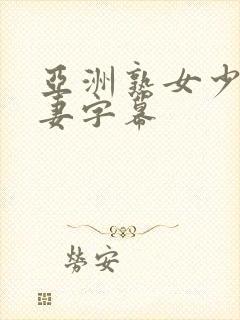 亞洲熟女少
妻字幕
勞安